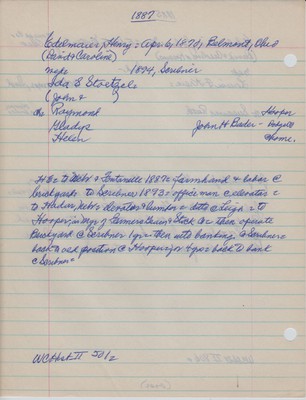 1887
Edelmaier, Henry = Apr 6, 1870, Belmont, Ohio
(David & Caroline)
mge 1894, Scribner
Ida B Stoetzel
(John &
ch Raymond Hooper
Gladys John H Bader -
Helen home.
HE = to Nebr & Fontenelle 1887 = farmhand & labor @
brickyards = to Scribner 1893 = office man @ elevator =
to Hadar, Nebr = elevator & lumber = ditto @ Leigh = to
Hooper in Mgr of Farmers Grain & Stock Co = then operate
Brickyard @ Scribner 1 yr = then into banking @ Scribner =
back to old position @ Hooper for 4 yrs = back to bank
@ Scribner =
WCHist II 501/2